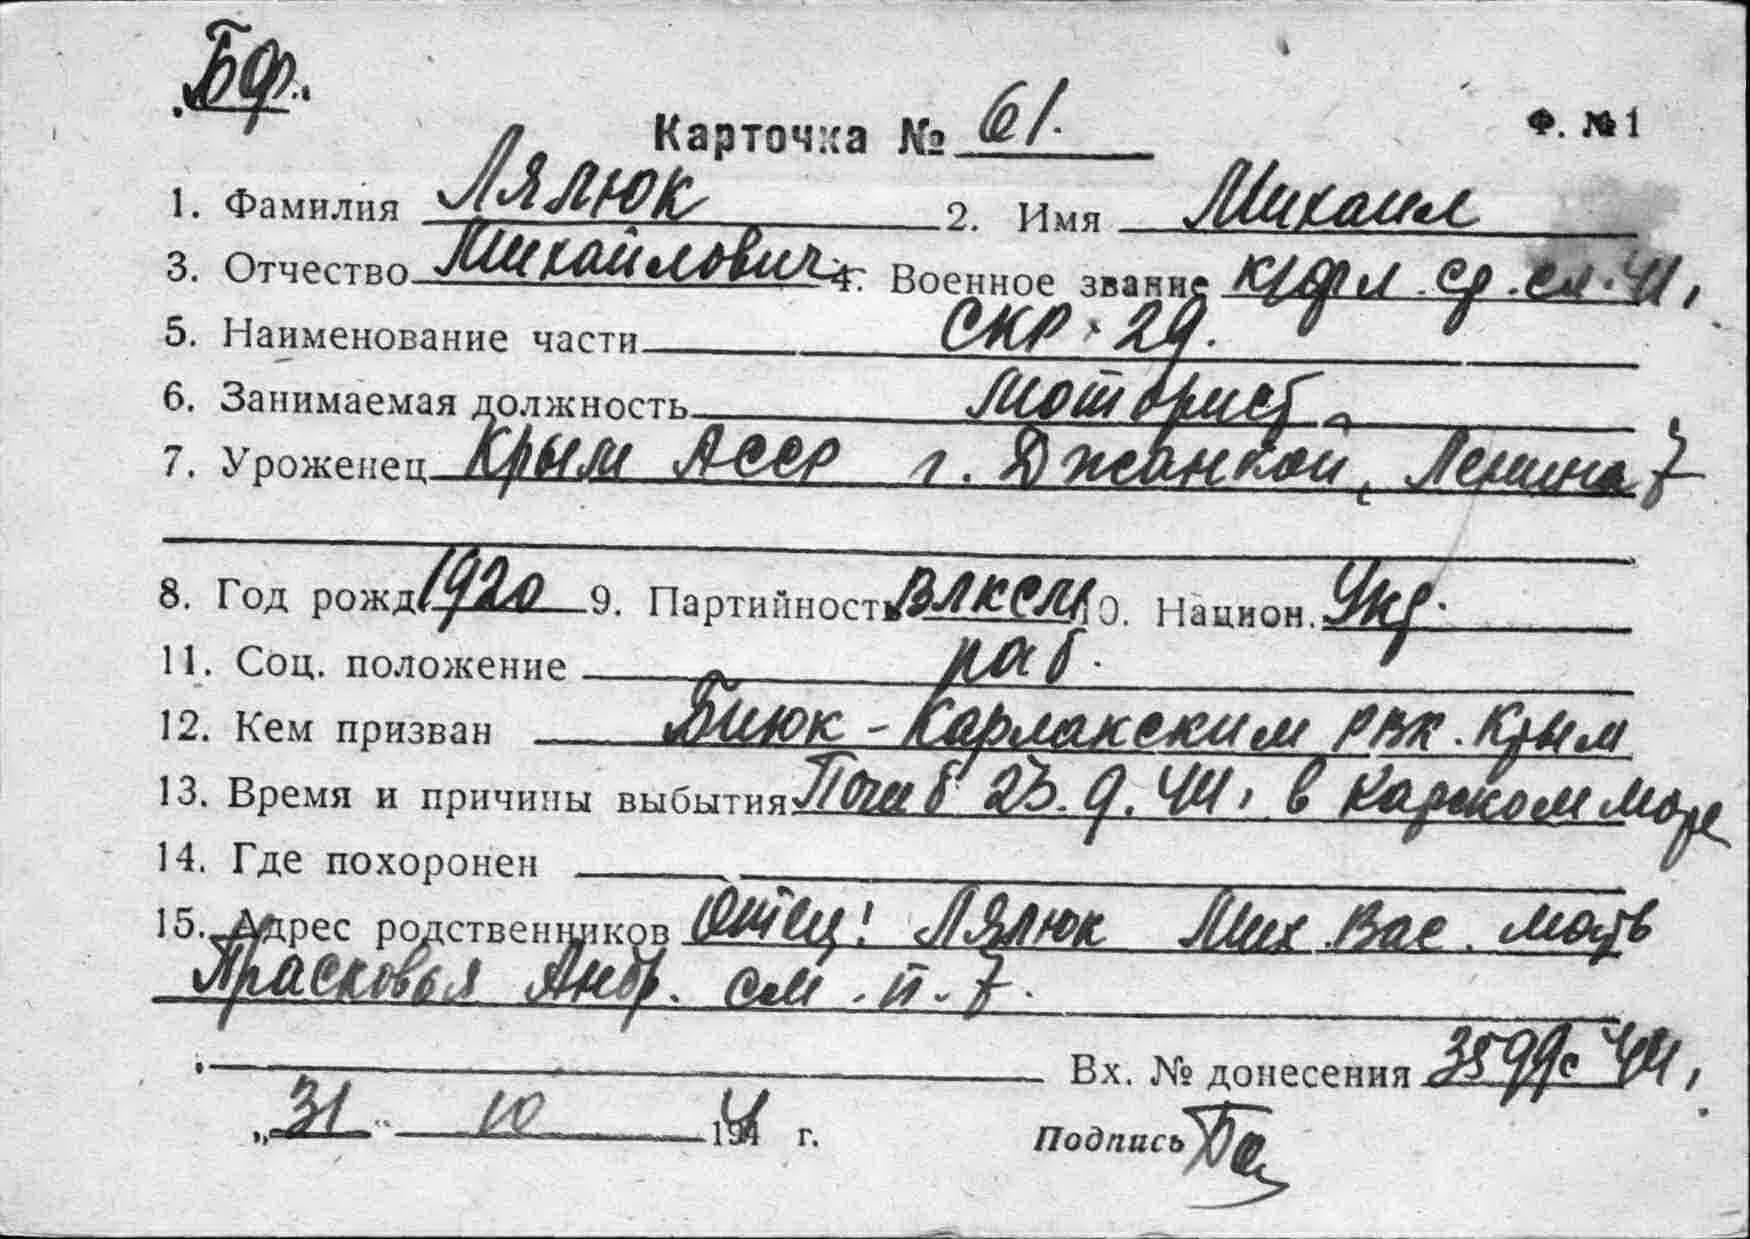 БФ.
Карточка № 61.
Ф. № 1
1. Фамилия Лялюк 2. Имя Михаил
3. Отчество Михайлович 4. Военное звание к/фл. ср. сл. 41,
5. Наименование части СКР - 29.
6. Занимаемая должность моторист
7. Уроженец Крым АССР г. Джанкой, Ленина 7
8. Год рожд. 1920 9. Партийность ВЛКСМ 10. Национ. Укр.
11. Соц. положение раб.
12. Кем призван Биюк - Карлакским РВК. Крым
13. Время и причины выбытия Погиб 23. 9. 44, в Карском море
14. Где похоронен
15. Адрес родственников Отец: Лялюк Мих. Вас. мать
Прасковья Андр. см. п. 7.
Вх. № донесения 3599с 44,
„31" 10 1944 г. Подпись